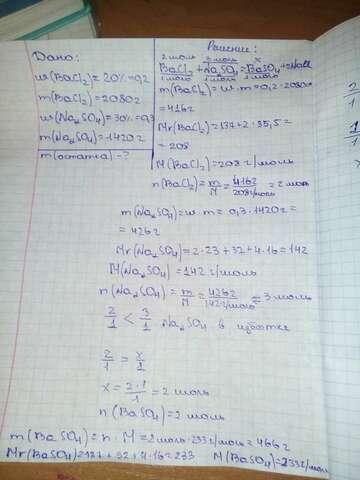 Дано:
w(BaCl2)=20%=0,2
m(BaCl2)=2080г
w(Na2SO4)=30%=0,3
m(Na2SO4)=1420г
m(остатка)-?
Решение:
2 моль 2 моль x
BaCl2+Na2SO4=BaSO4+NaCl
1 моль 1 моль 1 моль
m(BaCl2)=w·m=0,2·2080=
=416г
Mr(BaCl2)=137+2·35,5=
=208
M(BaCl2)=208г/моль
n(BaCl2)=m/M=416г/208г/моль=2 моль
m(Na2SO4)=w·m=0,3·1420г=
=426г
Mr(Na2SO4)=2·23+32+4·16=142
M(Na2SO4)=142г/моль
n(Na2SO4)=m/M=426г/142г/моль=3 моль
2/1 < 3/1 Na2SO4 в избытке
2/1 = x/1
x=2·1/1=2 моль
n(BaSO4)=2 моль
m(BaSO4)=n·M=2моль·233г/моль=466г
Mr(BaSO4)=137+32+4·16=233 M(BaSO4)=233г/моль